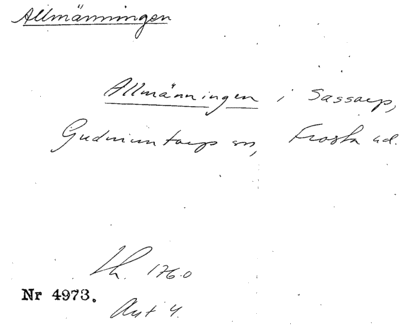 Allmänningen
Allmänningen i Sassarp,
Gudmuntorp sn, Frosta hd.
Lh. 1760
Nr 4973.
Avt 4.